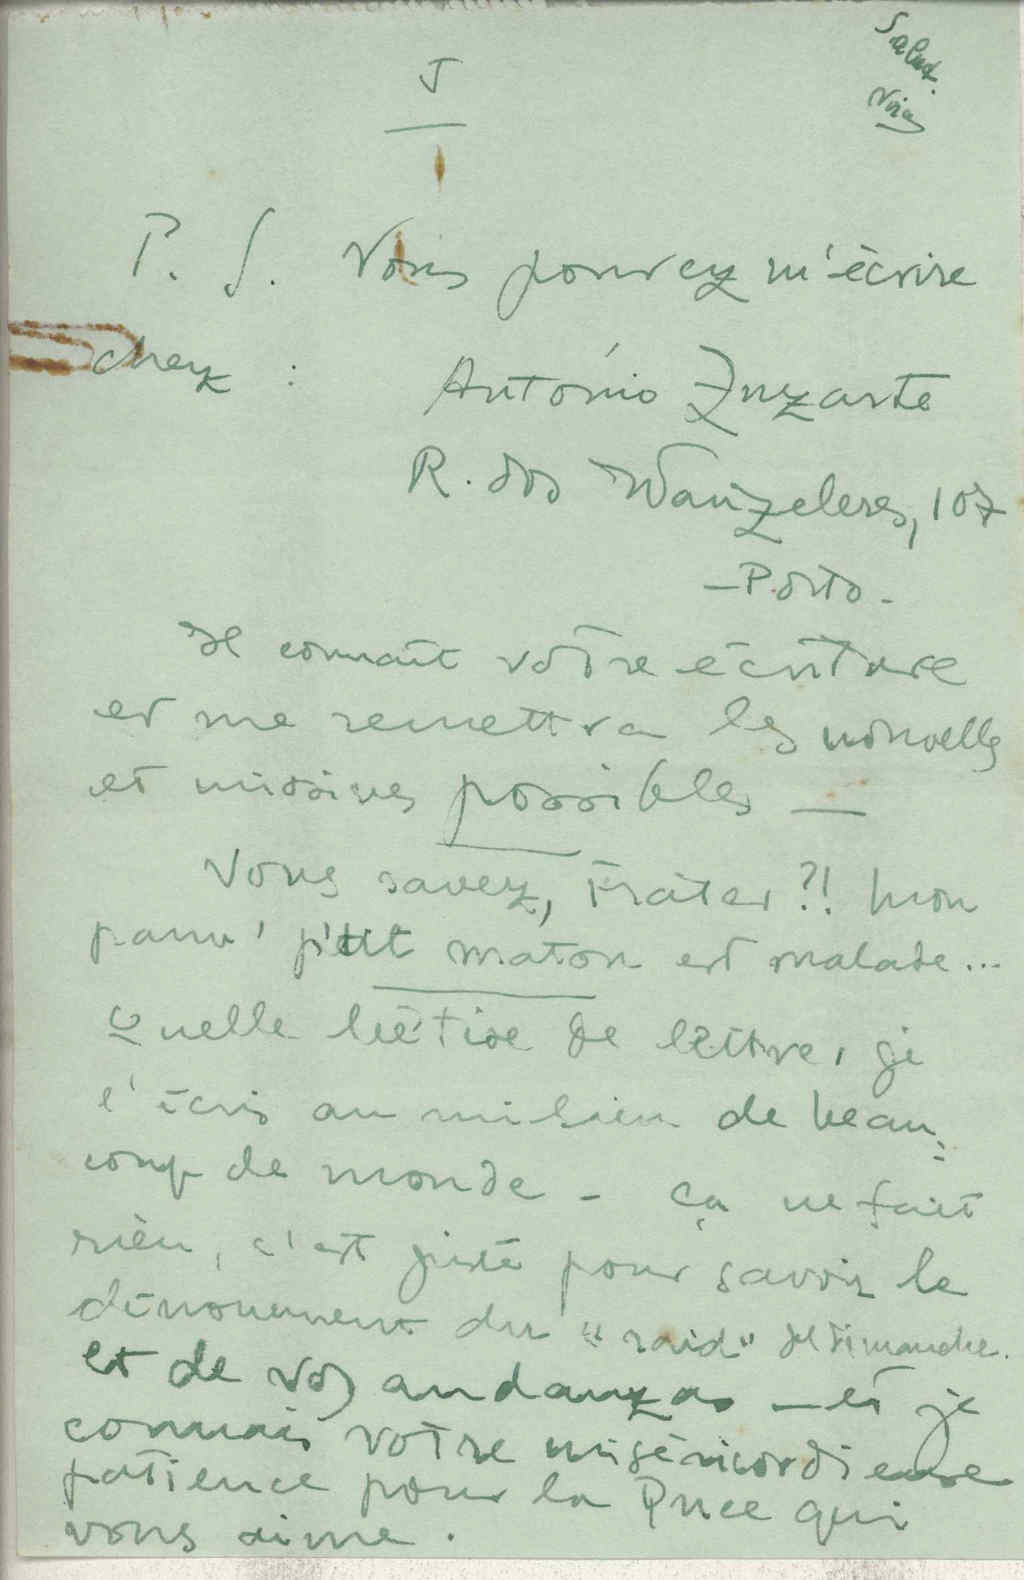 Salut.
I
P. S. Vous pouvez m'écrire
chez : António Zuzarte
R. dos Vanzeleres, 107
— Porto -
Il connaît votre écriture
et me remettra les nouvelles
et missives possibles —
Vous savez, Frater ?! Mon
pauv' p'tit maton est malade...
Quelle bêtise de lettre, je
l'écris au milieu de beau=
coup de monde - ça ne fait
rien, c'est juste pour savoir le
dénouement du "raid" de dimanche.
et de vos andanzas — et je
connais votre miséricordieuse
patience pour la Puce qui
vous aime.